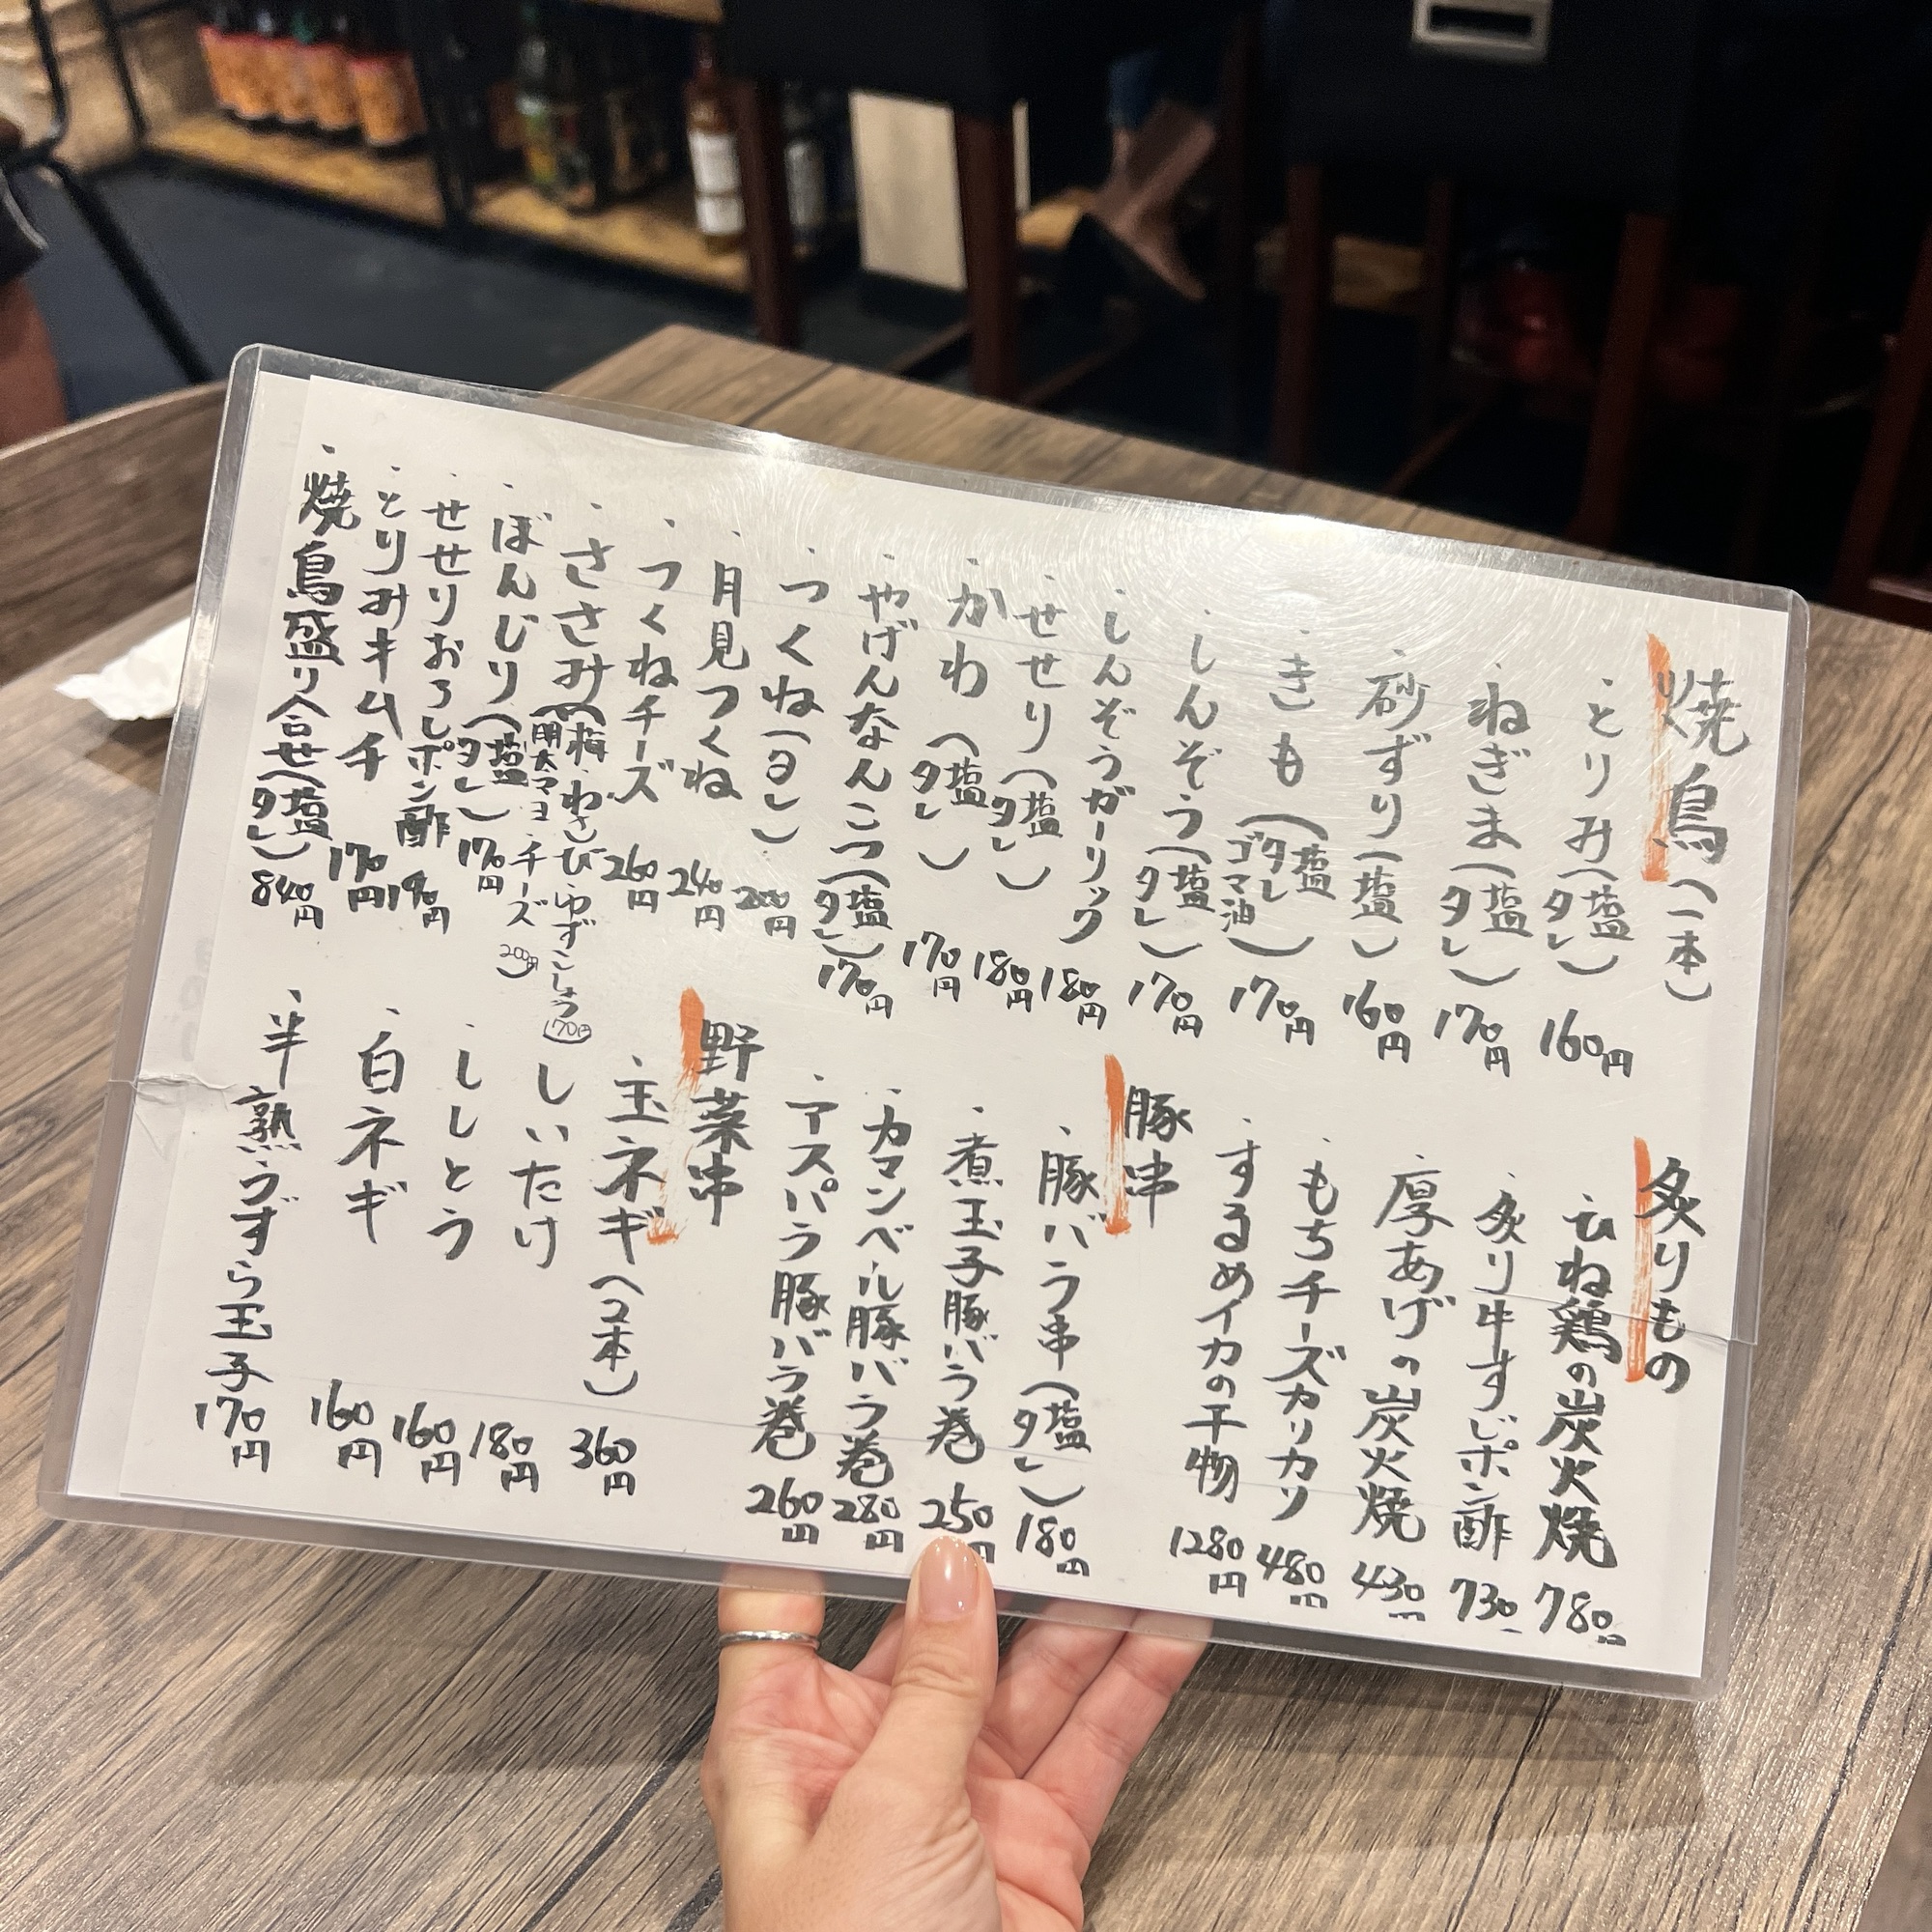 焼鳥(一本)
・とりみ(塩 タレ) 160円
・ねぎま(塩 タレ) 170円
・砂ずり(塩) 160円
・きも(塩 タレ ゴマ油) 170円
・しんぞう(塩 タレ) 170円
・しんぞうガーリック 180円
・せせり(塩 タレ) 180円
・かわ(塩 タレ) 170円
・やげんなんこつ(塩 タレ) 170円
・つくね(タレ) 200円
・月見つくね 240円
・つくねチーズ 260円
・ささみ(梅・わさび・ゆずこしょう 170円
明太マヨ・チーズ 200円)
・ぼんじり(塩 タレ) 170円
・せせりおろしポン酢 190円
・とりみキムチ 170円
・焼鳥盛り合せ(塩 タレ) 840円
炙りもの
・ひね鶏の炭火焼 780円
・炙り牛すじポン酢 730
・厚あげの炭火焼 430円
・もちチーズカリカリ 480円
・するめイカの干物 1280円
豚串
・豚バラ串(塩 タレ) 180円
・煮玉子豚バラ巻 250円
・カマンベール豚バラ巻 280円
・アスパラ豚バラ巻 260円
野菜串
・玉ネギ(2本) 360円
・しいたけ 180円
・ししとう 160円
・白ネギ 160円
・半熟うずら玉子 170円